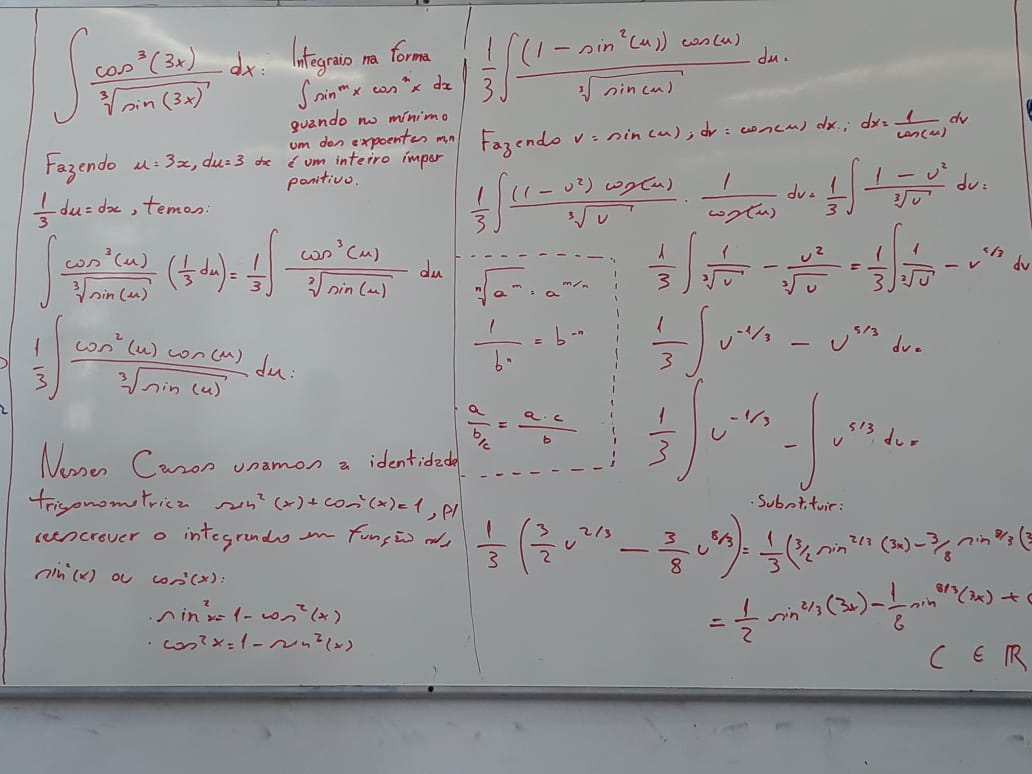 ∫ cos³(3x)/∛sin(3x) dx:
Integrais na forma
∫ sinᵐx cosⁿx dx
quando no mínimo
um dos expoentes m,n
é um inteiro ímpar
positivo.
Fazendo u = 3x, du = 3 dx
1/3 du = dx, temos:
∫ cos³(u)/∛sin(u) (1/3 du) = 1/3 ∫ cos³(u)/∛sin(u) du
1/3 ∫ cos²(u) cos(u)/∛sin(u) du:
Nesses Casos usamos a identidade
trigonometrica sin²(x) + cos²(x) = 1, p/
reescrever o integrando em função de
sin²(x) ou cos²(x):
· sin²x = 1 - cos²(x)
· cos²x = 1 - sin²(x)
1/3 ∫ (1 - sin²(u)) cos(u)/∛sin(u) du.
Fazendo v = sin(u); dv = cos(u) dx.; dx = 1/cos(u) dv
1/3 ∫ (1 - v²) cos(u)/∛v · 1/cos(u) dv = 1/3 ∫ 1 - v²/∛v dv:
1/3 ∫ 1/∛v - v²/∛v = 1/3 ∫ 1/∛v - v^5/3 dv
ⁿ√aᵐ = a^m/n
1/bⁿ = b⁻ⁿ
a/b/c = a·c/b
1/3 ∫ v^-1/3 - v^5/3 dv =
1/3 ∫ v^-1/3 - ∫ v^5/3 dv =
· Substituir:
1/3 (3/2 v^2/3 - 3/8 v^8/3) = 1/3 (3/2 sin^2/3 (3x) - 3/8 sin^8/3 (3
= 1/2 sin^2/3 (3x) - 1/8 sin^8/3 (3x) +
C ∈ ℝ